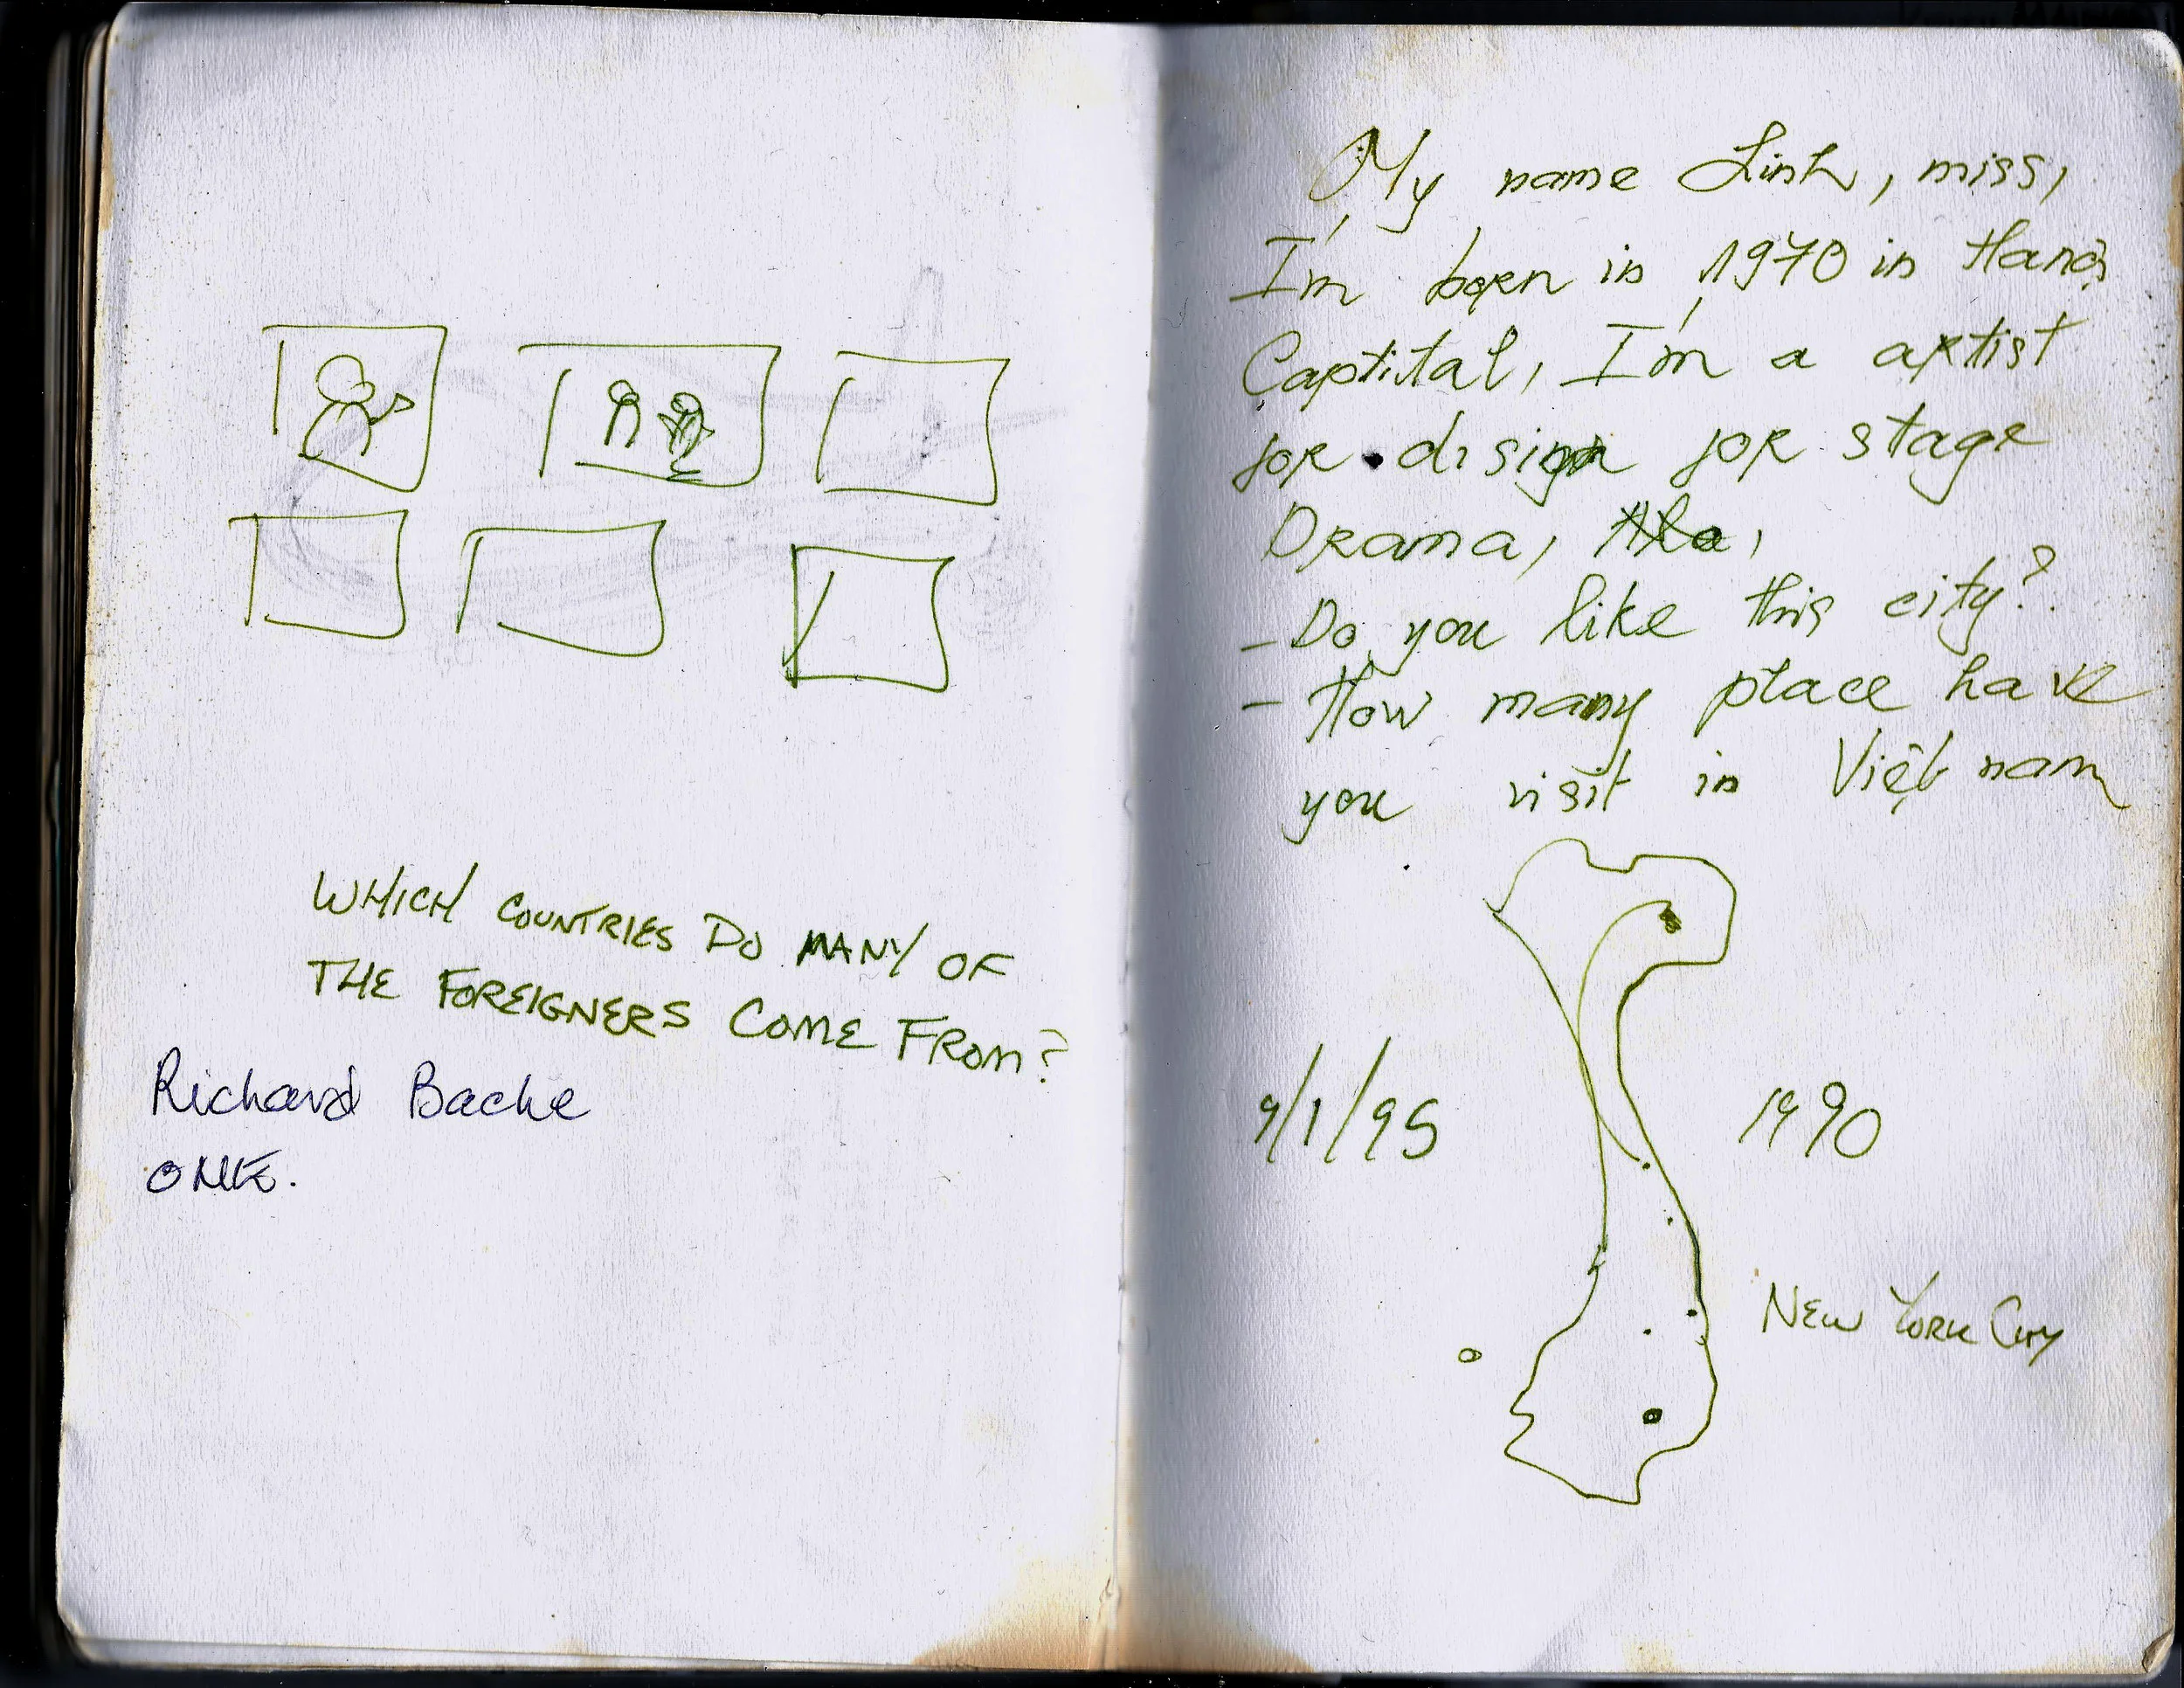 WHICH COUNTRIES DO MANY OF
THE FOREIGNERS COME FROM?
Richard Bache
ONE.
My name Linh, miss,
I'm born in 1970 in Hanoi
Captital, I'm a artist
for disign for stage
Drama,
- Do you like this city?
- How many place have
you visit in Việt nam
9/1/95
1990
NEW YORK CITY